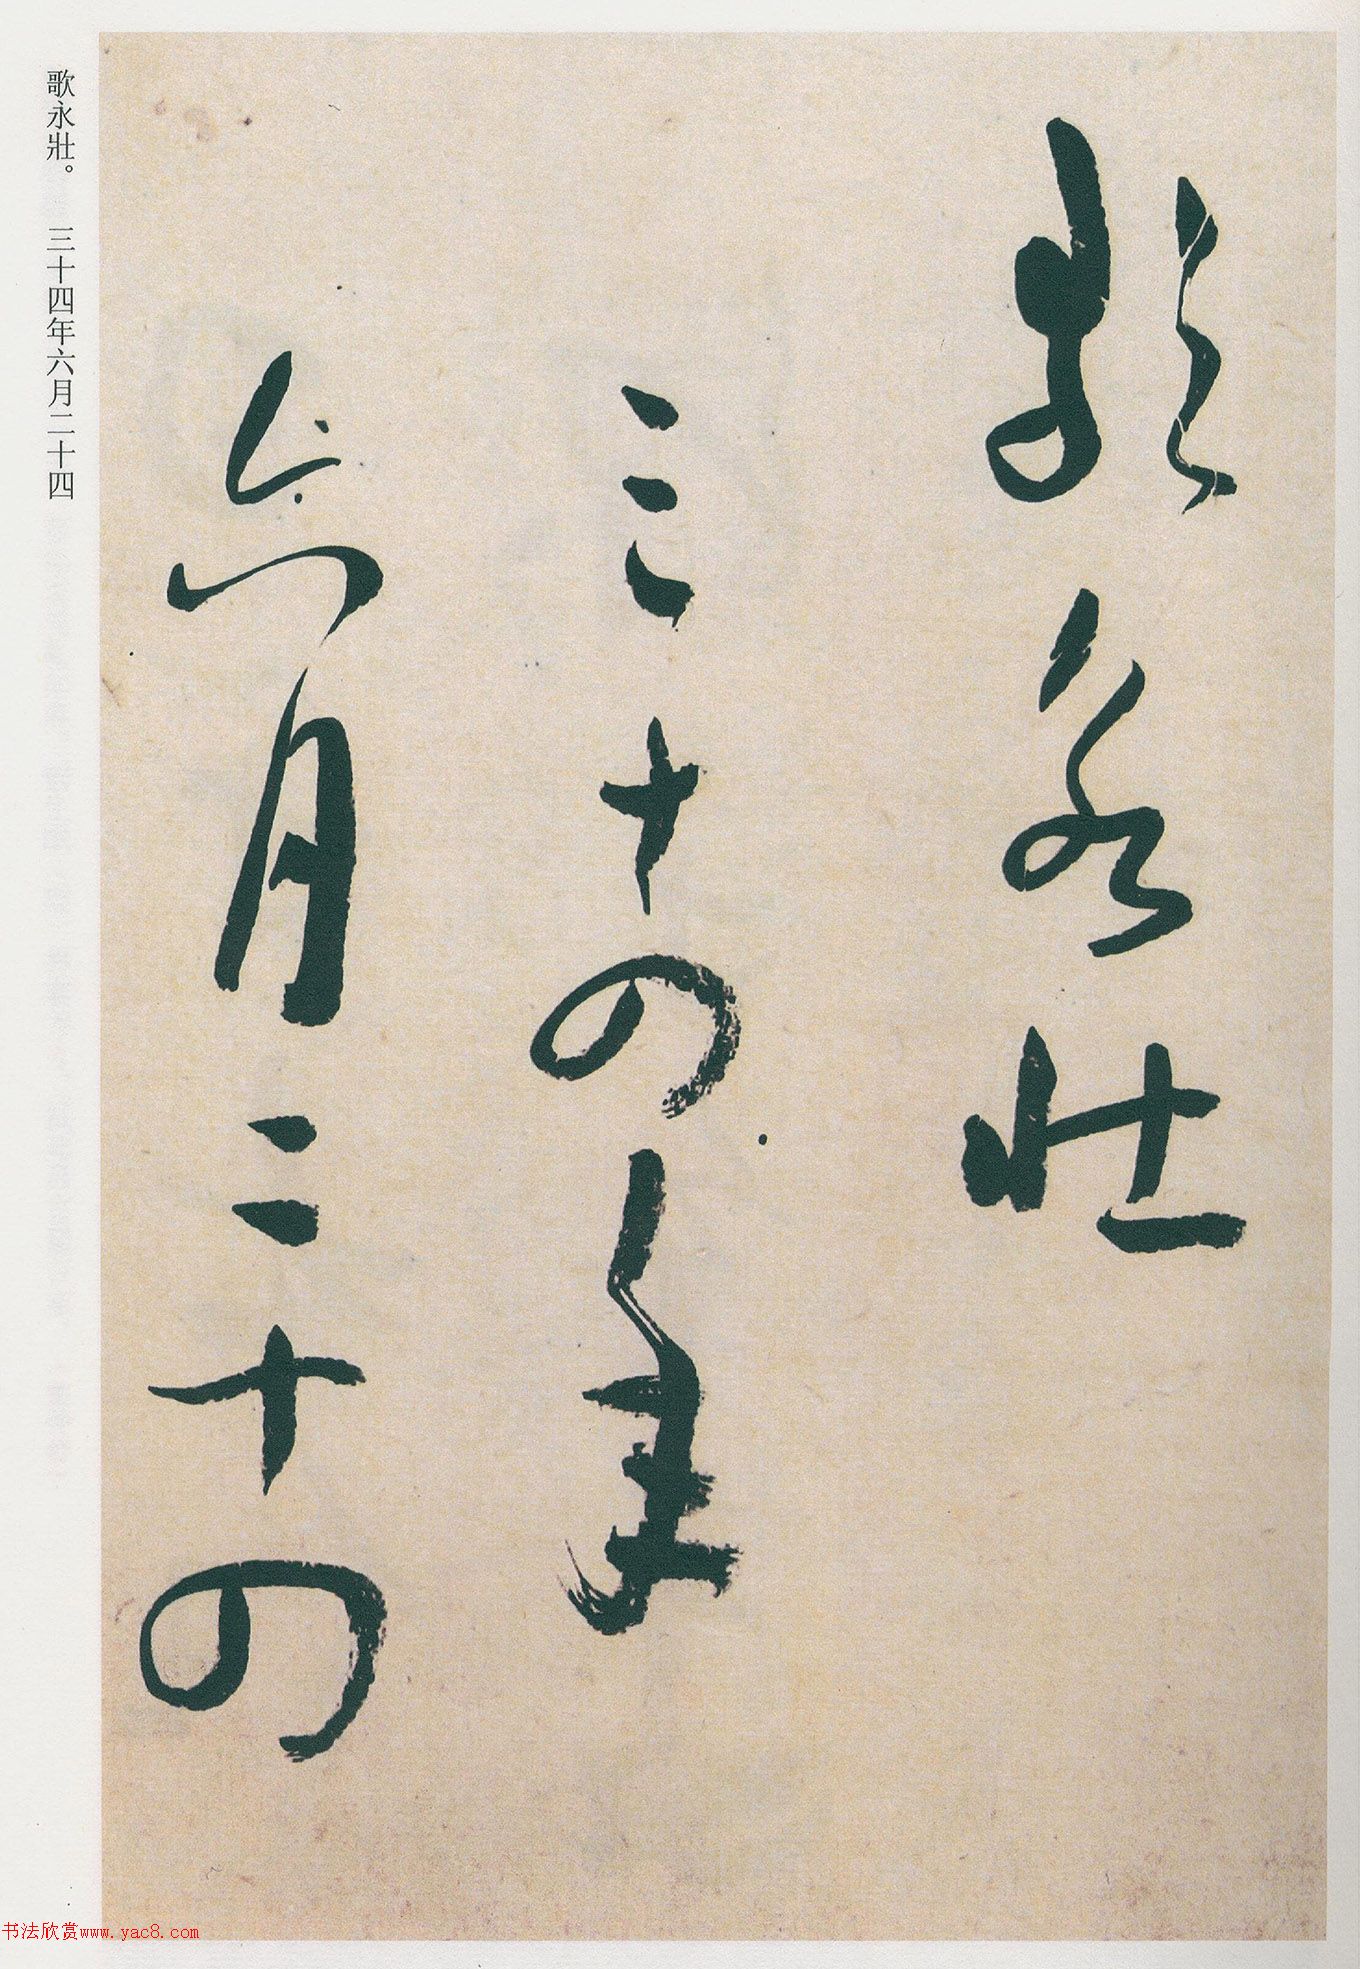 歌永壯
三十四年
六月二十四
歌永壯。 三十四年六月二十四
书法欣赏www.yac8.com